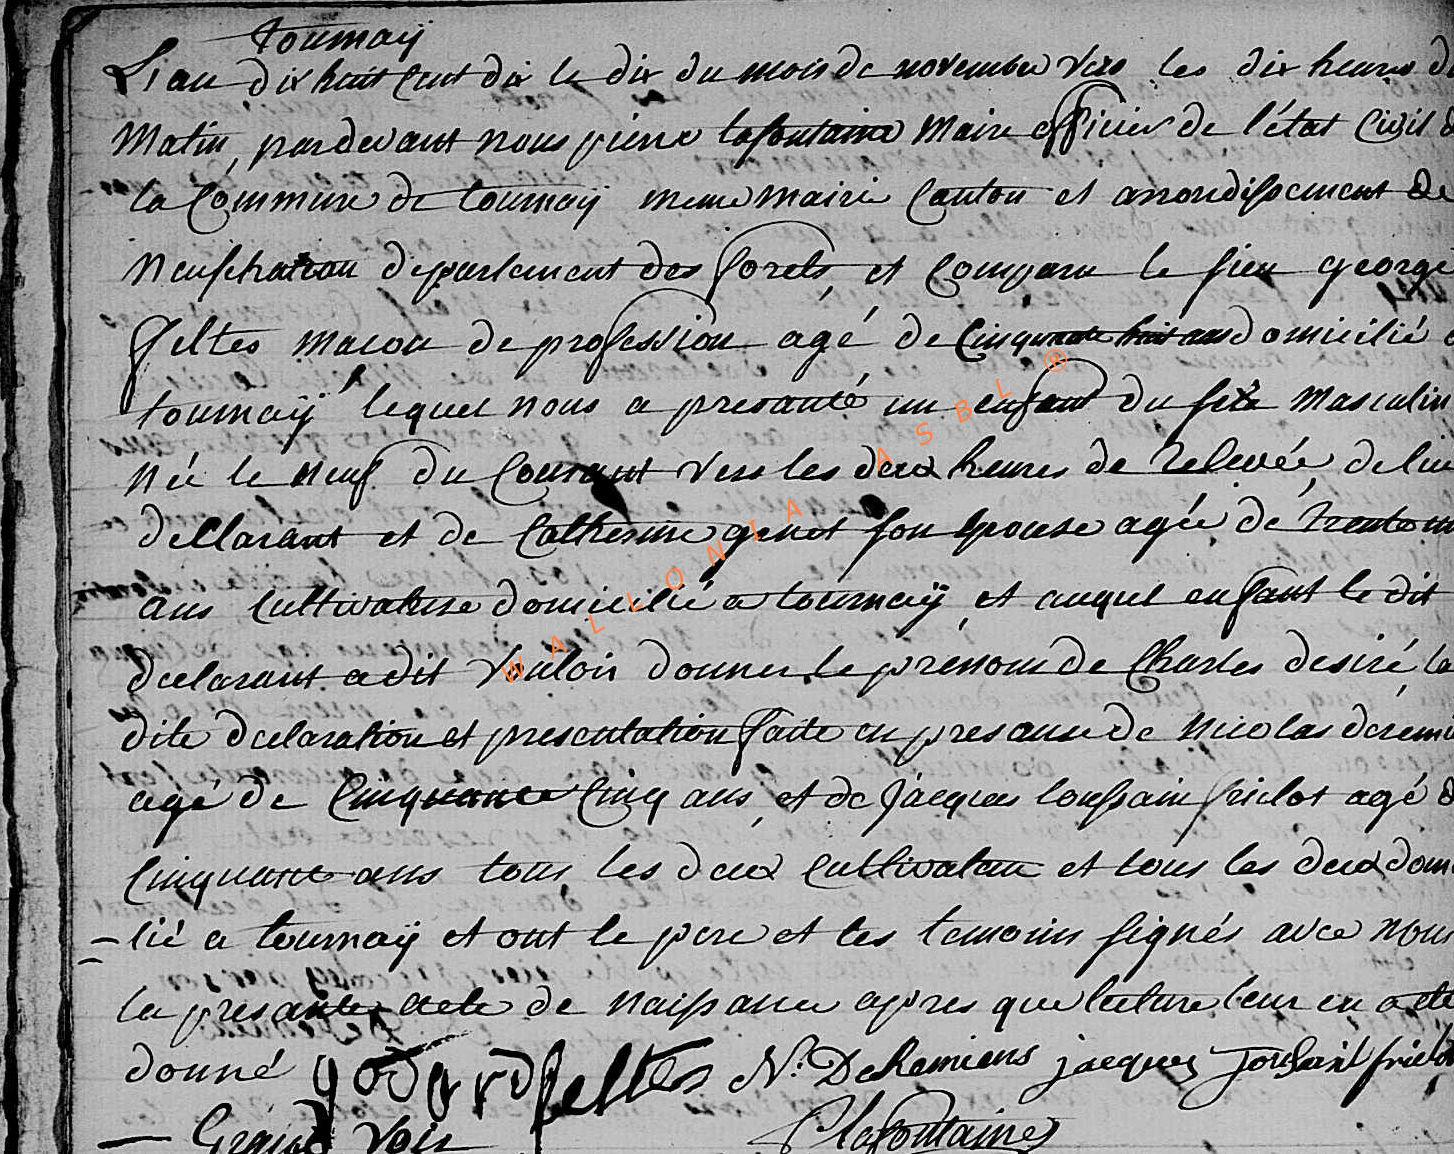 tournaÿ
L'an dix huit cent dix le dix du mois de novembre vers les dix heures d
Matin, pardevant nous pierre lafontaine Maire officier de l'état Civil d
la Commune de tournaÿ meme mairie Canton et arrondissement de
Neufchateau departement des forets, et Comparu le sieur george
feltes macon de profession agé de Cinquante huit ans domicilié
tournaÿ lequel nous a presanté un enfant du sexe Masculin
Né le neuf du Courant vers les deux heures de relevée de lui
dellarant et de Catherine genot son Epouse agée de trente
ans Cultivatrise domicilié a tournaÿ, et auquel enfant le dit
declarant a dit vouloir donner le prénom de Charles desiré, la
dite declaration et presentation faite en presanse de Nicolas deremi
agé de Cinquante Cinq ans, et de Jacques toussain friclot agé d
Cinquante ans tous les deux Cultivateur et tous les deux domi
-lié a tournaÿ et ont le pere et les temoins signés avec nous
le presante acte de naissance apres que lecture leur en a été
donné godard feltes N. DeRemiens jacques tousaint friclot
Grand Voir Plafontaine
WALLONIA ASBL ®